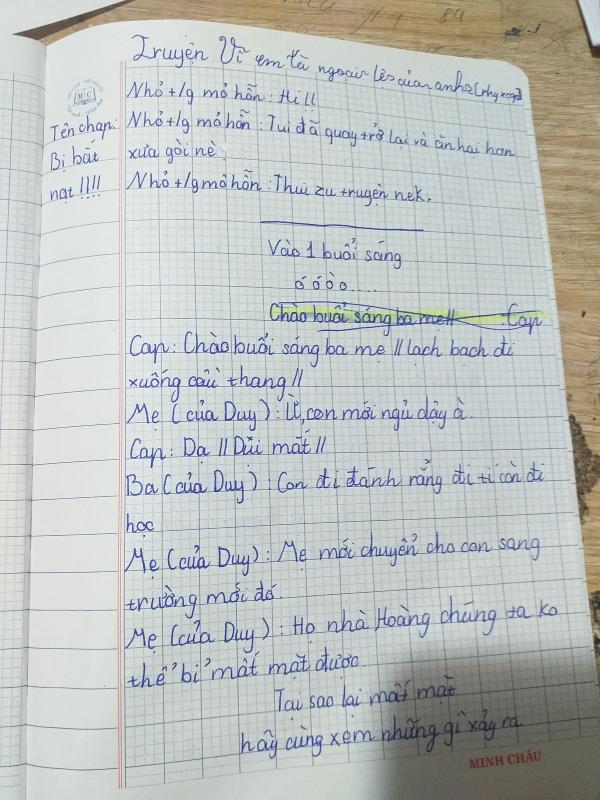 Truyện Vì em là ngoại lệ của anh: [rhycap]
Nhỏ +/g mỏ hỗn : Hi !!
Tên chap:
Nhỏ +/g mỏ hỗn : Tui đã quay trở lại và ăn hai hơn
Bị bắt
xưa gòi nè.
nạt !!!!
Nhỏ +/g mỏ hỗn : Thui zu truyện nek.
Vào 1 buổi sáng
ó ó ò o....
Chào buổi sáng ba mẹ // : Cap
Cap: Chào buổi sáng ba mẹ // lạch bạch đi
xuống cầu thang //
Mẹ (của Duy) : Ừ, con mới ngủ dậy à.
Cap: Dạ // Dũi mắt //
Ba (của Duy) : Con đi đánh rằng đi tí còn đi
học
Mẹ (của Duy) : Mẹ mới chuyển cho con sang
trường mới đó.
Mẹ (của Duy) : Họ nhà Hoàng chúng ta ko
thể bị mất mặt được.
Tại sao lại mất mặt
hãy cùng xem những gì xảy ra
MINH CHÂU